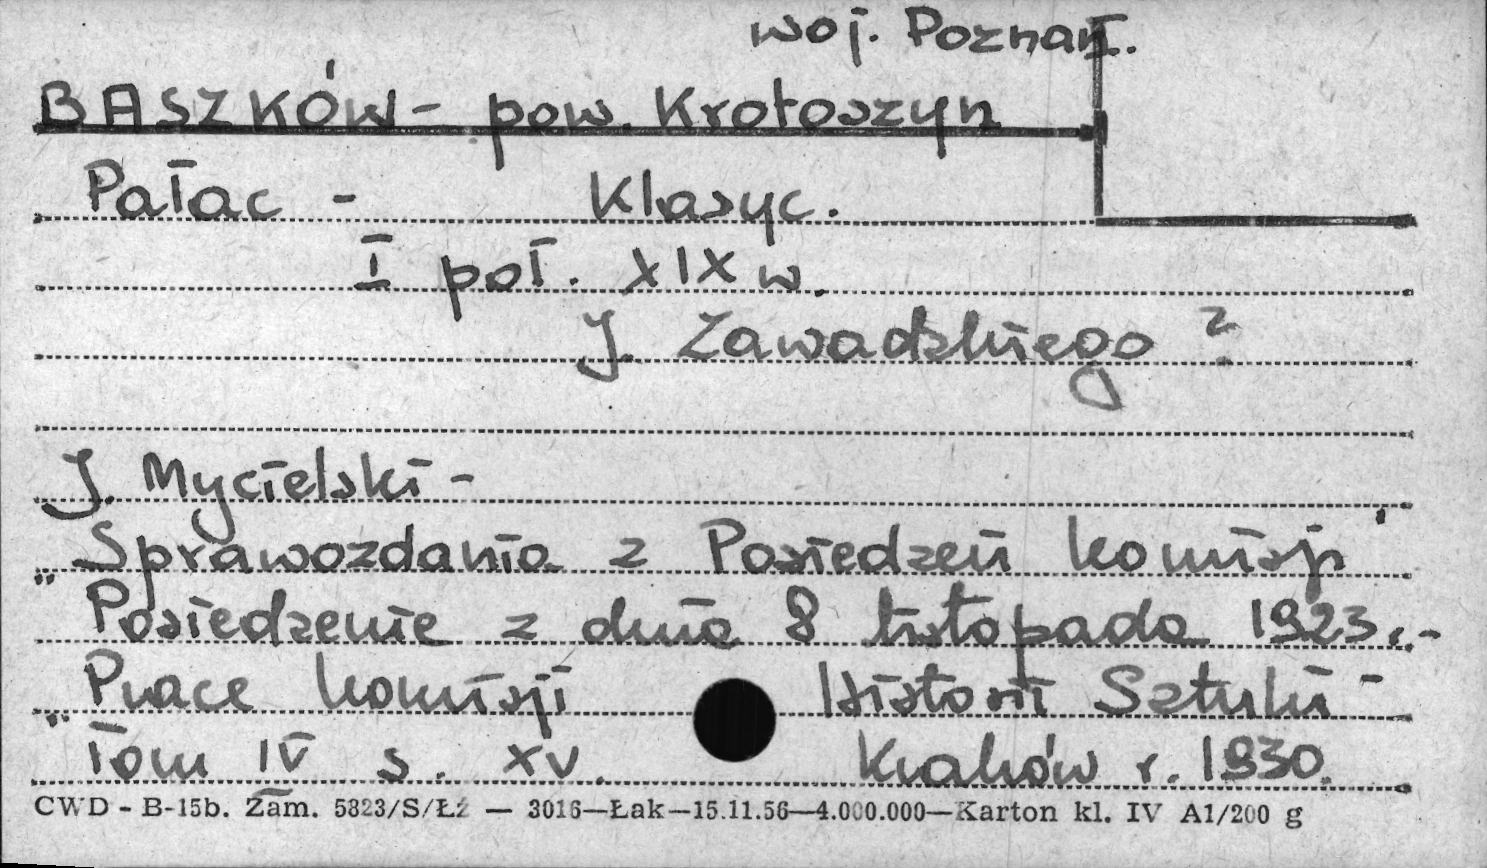 woj. Poznań.
BASZKÓW - pow. Krotoszyn
Pałac - Klasyc.
I poł. XIX w.
J. Zawadzkiego ?
J. Mycielski -
Sprawozdania z Posiedzeń Komisji
"Posiedzenie z dnia 8 listopada 1923. -
Prace Komisji Historii Sztuki -
"Tom IV s. XV. Kraków r. 1930.
CWD - B-15b. Zam. 5823/S/ŁŹ — 3016—Łak—15.11.56—4.000.000—Karton kl. IV A1/200 g